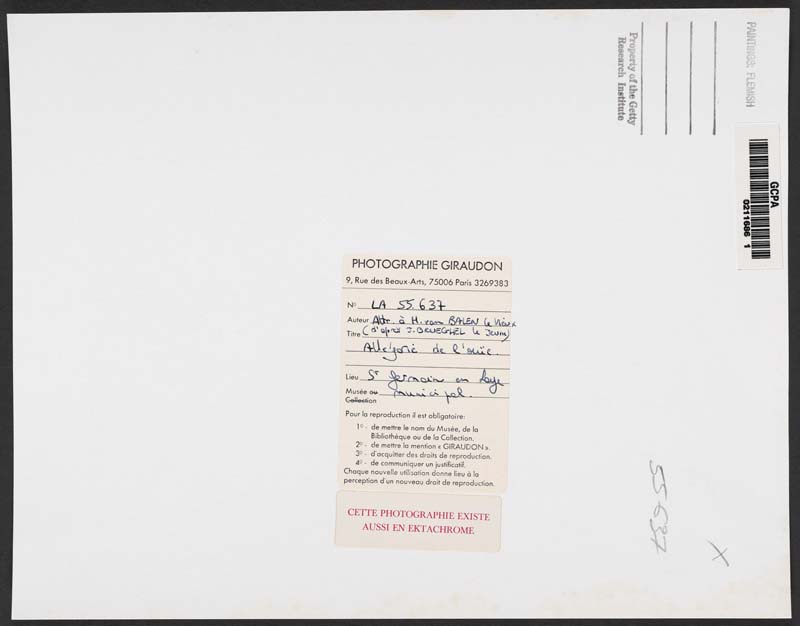 PAINTINGS: FLEMISH
Property of the Getty
Research Institute
GCPA
0211686 1
PHOTOGRAPHIE GIRAUDON
9, Rue des Beaux-Arts, 75006 Paris 3269383
No LA 55.637
Auteur Attr. à H. van BALEN le Vieux
Titre (d'après J. BRUEGHEL le Jeune)
Allégorie de l'ouïe.
Lieu St Germain en Laye
Musée ou municipal.
Collection
Pour la reproduction il est obligatoire:
1o - de mettre le nom du Musée, de la
Bibliothèque ou de la Collection.
2o - de mettre la mention « GIRAUDON ».
3o - d'acquitter des droits de reproduction.
4o - de communiquer un justificatif.
Chaque nouvelle utilisation donne lieu à la
perception d'un nouveau droit de reproduction.
CETTE PHOTOGRAPHIE EXISTE
AUSSI EN EKTACHROME
55637
X